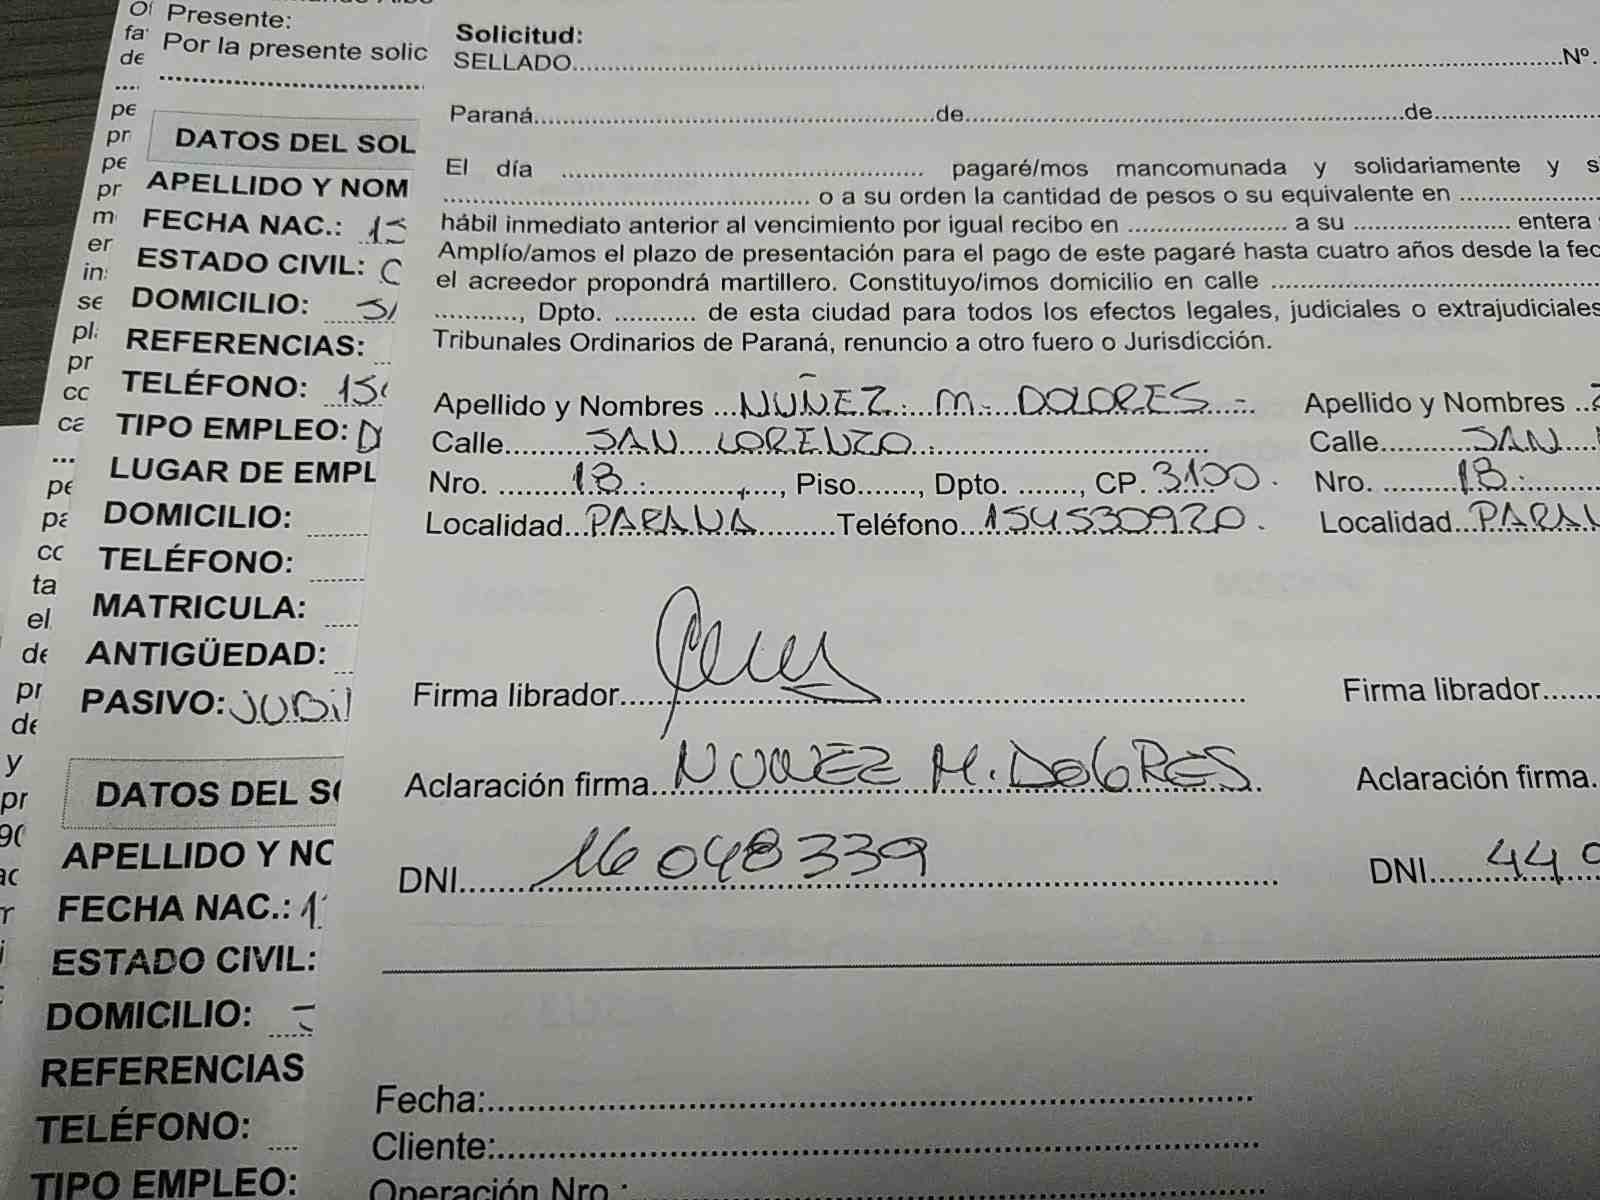 Presente:
Por la presente solic
DATOS DEL SOL
APELLIDO Y NOM
FECHA NAC.:
ESTADO CIVIL:
DOMICILIO:
REFERENCIAS:
TELÉFONO:
TIPO EMPLEO:
LUGAR DE EMPL
DOMICILIO:
TELÉFONO:
MATRICULA:
ANTIGÜEDAD:
PASIVO: JUBIL
DATOS DEL SO
APELLIDO Y NO
FECHA NAC.:
ESTADO CIVIL:
DOMICILIO:
REFERENCIAS
TELÉFONO:
TIPO EMPLEO:
Solicitud:
SELLADO..........Nº
Paraná..........de..........de..........
El día .......... pagaré/mos mancomunada y solidariamente y s
.......... o a su orden la cantidad de pesos o su equivalente en ..........
hábil inmediato anterior al vencimiento por igual recibo en .......... a su .......... entera
Amplío/amos el plazo de presentación para el pago de este pagaré hasta cuatro años desde la fec
el acreedor propondrá martillero. Constituyo/imos domicilio en calle ..........
.........., Dpto. .......... de esta ciudad para todos los efectos legales, judiciales o extrajudiciales
Tribunales Ordinarios de Paraná, renuncio a otro fuero o Jurisdicción.
Apellido y Nombres NUÑEZ M. DOLORES Apellido y Nombres
Calle SAN LORENZO Calle SAN
Nro. 18, Piso......., Dpto. ......., CP. 3100. Nro. 18
Localidad PARANA Teléfono 154530920. Localidad PARAN
Firma librador.......... Firma librador.......
Aclaración firma NUÑEZ M. DOLORES Aclaración firma.
DNI 16048339 DNI 44
Fecha:..........
Cliente:..........
Operación Nro.: